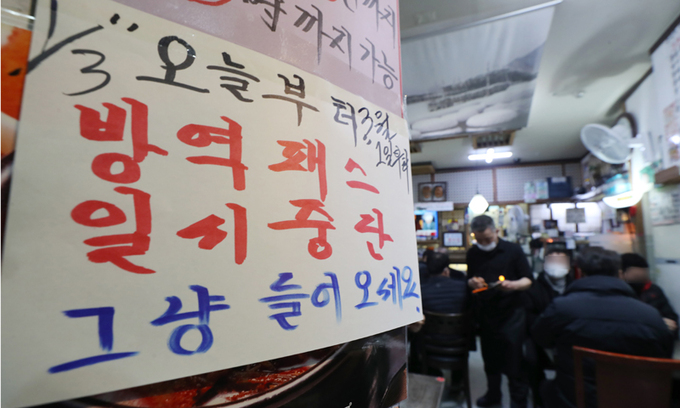 時까지가능
3/1 오늘부터
3월1일부터
방역패스
일시중단
그냥 들어오세요